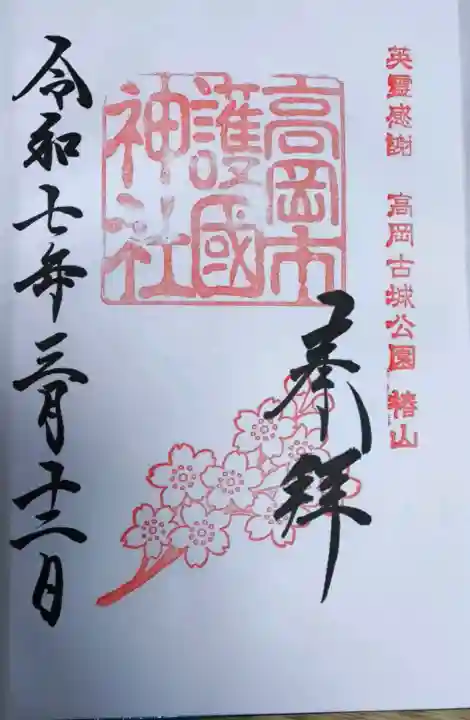 英霊感謝 高岡古城公園 椿山
高岡市
護國
神社
奉拝
令和七年三月十三日